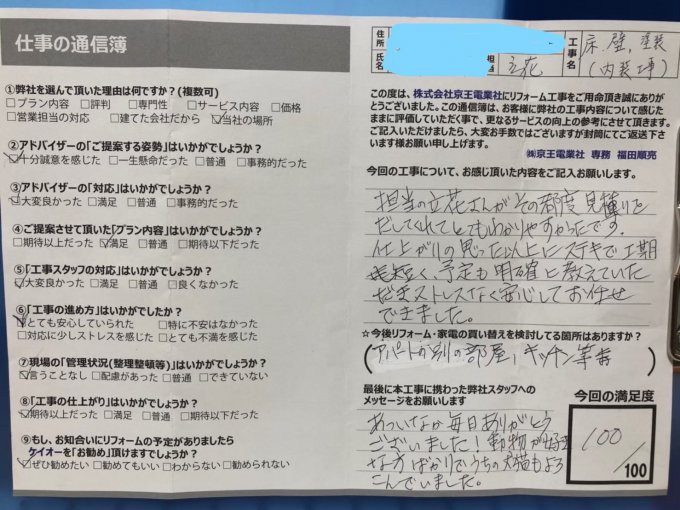 仕事の通信簿
住所
氏名
担当
立花
工事名
床、壁、塗装
(内装工事)
①弊社を選んで頂いた理由は何ですか?(複数可)
□プラン内容 □評判 □専門性 □サービス内容 □価格
□営業担当の対応 □建てた会社だから ☑当社の場所
②アドバイザーの「ご提案する姿勢」はいかがでしょうか?
☑十分誠意を感じた □一生懸命だった □普通 □事務的だった
③アドバイザーの「対応」はいかがでしょうか?
☑大変良かった □満足 □普通 □事務的だった
④ご提案させて頂いた「プラン内容」はいかがでしょうか?
□期待以上だった ☑満足 □普通 □期待以下だった
⑤「工事スタッフの対応」はいかがでしょうか?
☑大変良かった □満足 □普通 □良くなかった
⑥「工事の進め方」はいかがでしたか?
☑とても安心していられた □特に不安はなかった
□対応に少しストレスを感じた □とても不満を感じた
⑦現場の「管理状況(整理整頓等)」はいかがでしょうか?
☑言うことなし □配慮があった □普通 □できていない
⑧「工事の仕上がり」はいかがでしょうか?
☑期待以上だった □満足 □普通 □期待以下だった
⑨もし、お知合いにリフォームの予定がありましたら
ケイオーを「お勧め」頂けますでしょうか?
☑ぜひ勧めたい □勧めてもいい □わからない □勧められない
この度は、株式会社京王電業社にリフォーム工事をご用命頂き誠にありが
とうございました。この通信簿は、お客様に弊社の工事内容について感じた
ままに評価していただく事で、更なるサービスの向上の参考にさせて頂きます。
ご記入いただけましたら、大変お手数ではございますが封筒にてご返送下さ
います様お願い申し上げます。
㈱京王電業社 専務 福田順亮
今回の工事について、お感じ頂いた内容をご記入お願いします。
担当の立花さんがその都度見積りを
だしてくれてとてもわかりやすかったです。
仕上がりの思った以上にステキで工期
も短く、予定も明確に教えていた
だきストレスなく安心してお任せ
できました。
☆今後リフォーム・家電の買い替えを検討してる箇所はありますか?
(アパートか別の部屋、キッチン等
最後に本工事に携わった弊社スタッフへの
メッセージをお願いします
あついなか毎日ありがとう
ございました!動物が好き
な方ばかりでうちの犬猫もよろ
こんでいました。
今回の満足度
100
/100